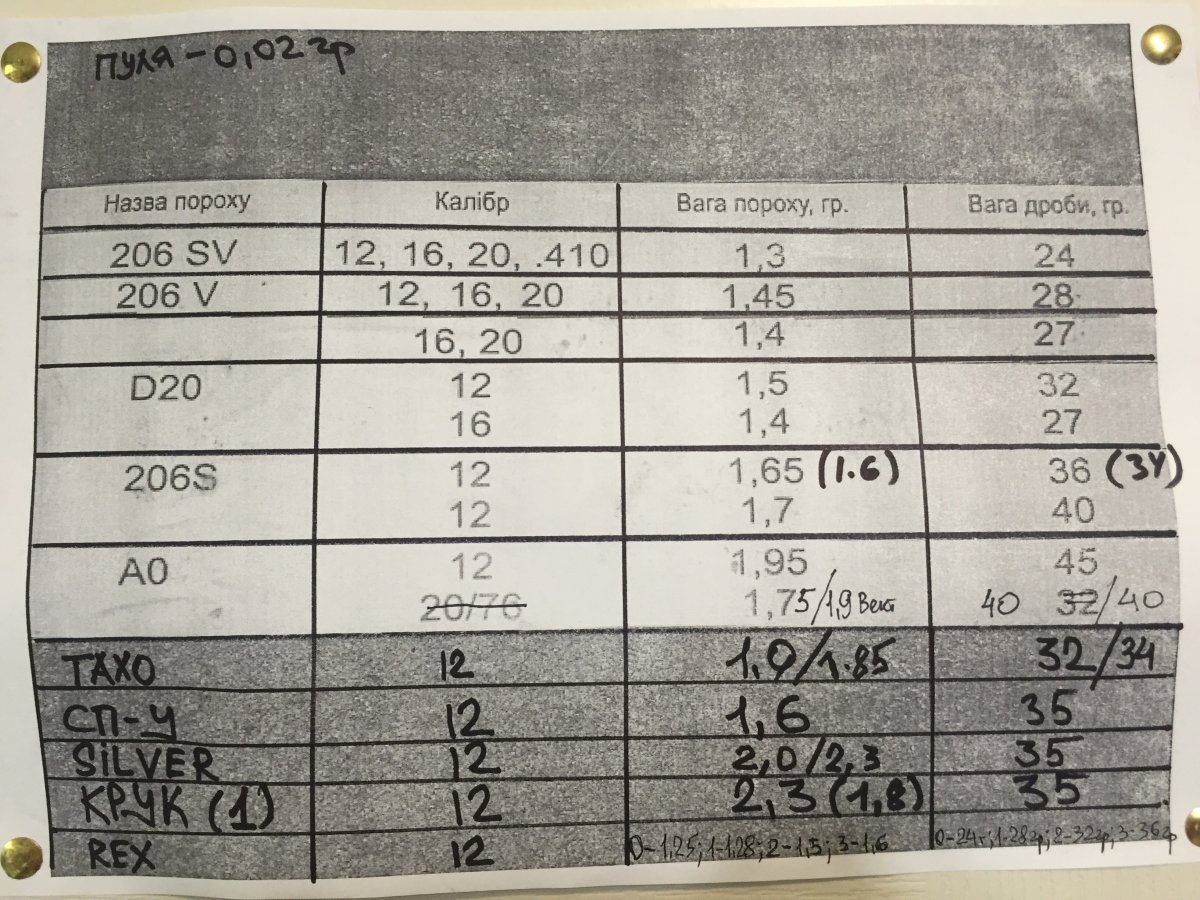 пуля - 0,02 гр
Назва пороху Калібр Вага пороху, гр. Вага дроби, гр.
206 SV 12, 16, 20, .410 1,3 24
206 V 12, 16, 20 1,45 28
16, 20 1,4 27
D20 12 1,5 32
16 1,4 27
206S 12 1,65 (1.6) 36 (34)
12 1,7 40
A0 12 1,95 45
20/76 1,75/1,9 40 32/40
ТАХО 12 1.9/1.85 32/34
СП-У 12 1,6 35
SiLVER 12 2,0/2,3 35
КРУК (1) 12 2,3 (1,8) 35
REX 12 0-1,25; 1-1,28; 2-1,5; 3-1,6 0-24г; 1-28гр; 2-32гр, 3-36гр